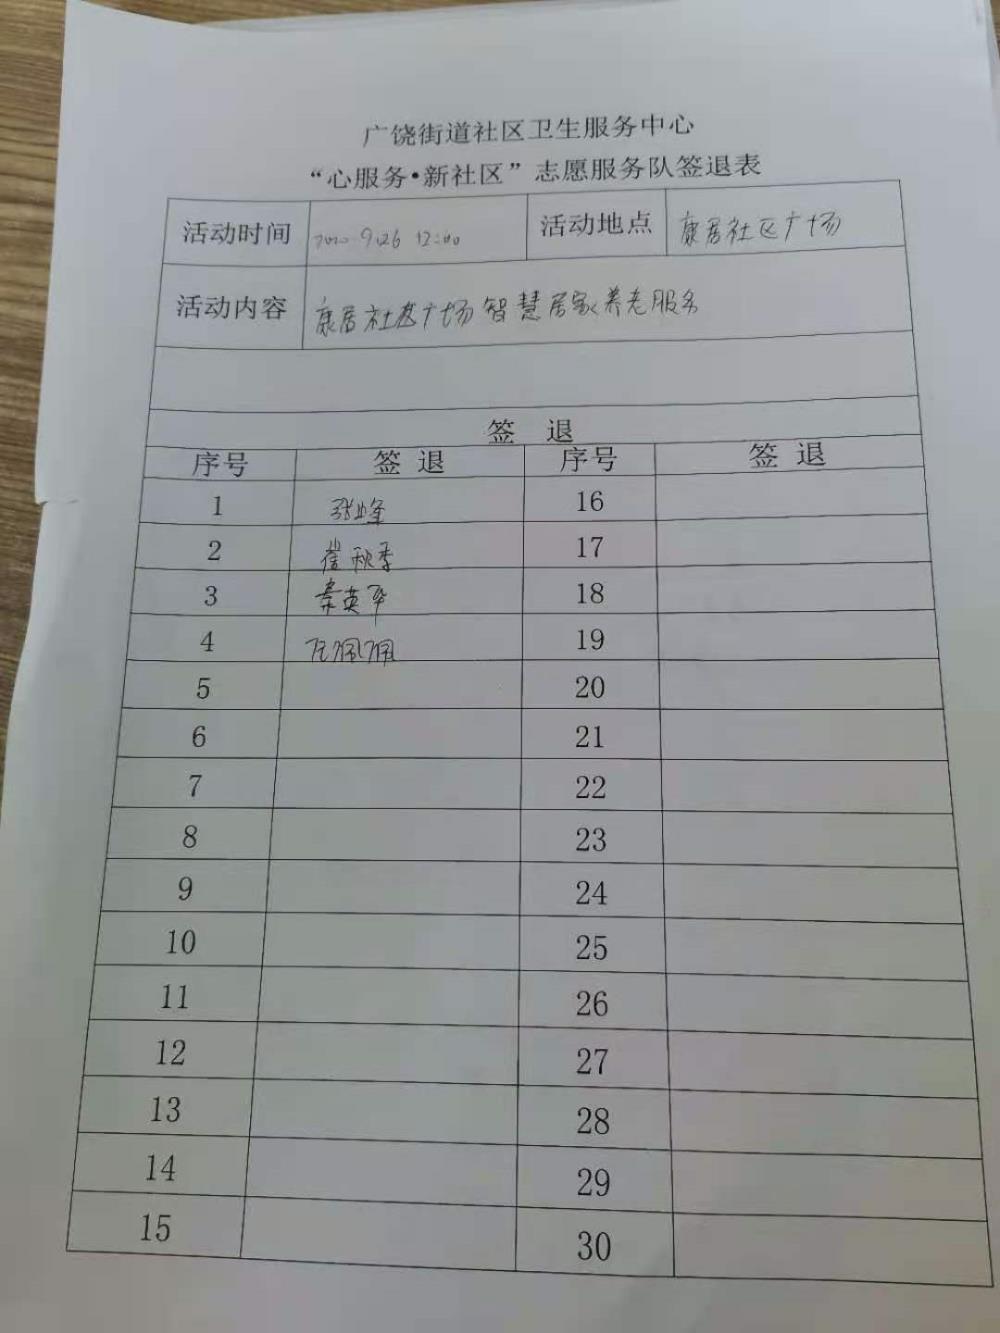 广饶街道社区卫生服务中心
“心服务•新社区”志愿服务队签退表
活动时间 2020.9.26 12:00 活动地点 康居社区广场
活动内容 康居社区广场智慧居家养老服务
签 退
序号 签 退 序号 签 退
1 张峰 16
2 崔秋季 17
3 秦英华 18
4 佩佩 19
5 20
6 21
7 22
8 23
9 24
10 25
11 26
12 27
13 28
14 29
15 30